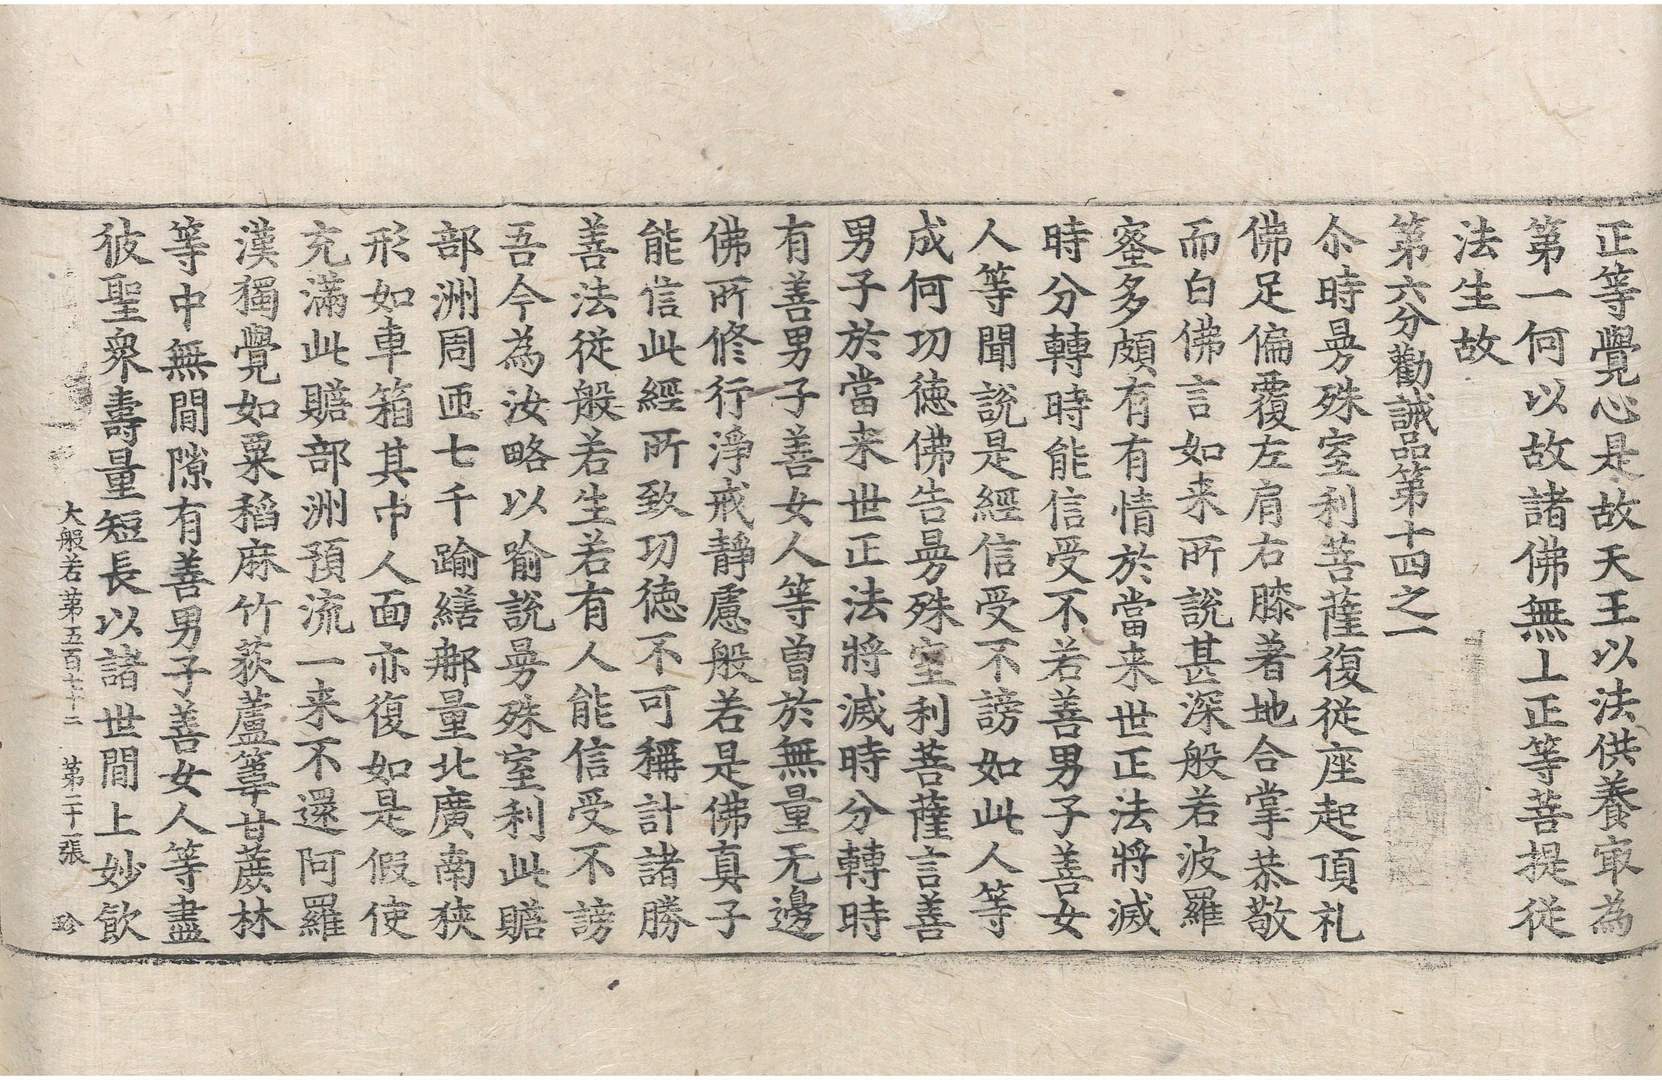 正等覺心是故天王以法供養㝡為
第一何以故諸佛無上正等菩提從
法生故
第六分勸誡品第十四之一
尒時曼殊室利菩薩復從座起頂礼
佛足偏覆左肩右膝著地合掌恭敬
而白佛言如来所說甚深般若波羅
蜜多頗有有情於當来世正法將滅
時分轉時能信受不若善男子善女
人等聞說是經信受不謗如此人等
成何功徳佛告曼殊室利菩薩言善
男子於當来世正法將滅時分轉時
有善男子善女人等曽於無量无邊
佛所修行淨戒靜慮般若是佛真子
能信此經所致功徳不可稱計諸勝
善法從般若生若有人能信受不謗
吾今為汝略以喻說曼殊室利此贍
部洲周匝七千踰繕那量北廣南狹
形如車箱其中人面亦復如是假使
充滿此贍部洲預流一来不還阿羅
漢獨覺如粟稻麻竹荻蘆葦甘蔗林
等中無間隙有善男子善女人等盡
彼聖衆壽量短長以諸世間上妙飲
大般若第五百七十二 第二十張 珍